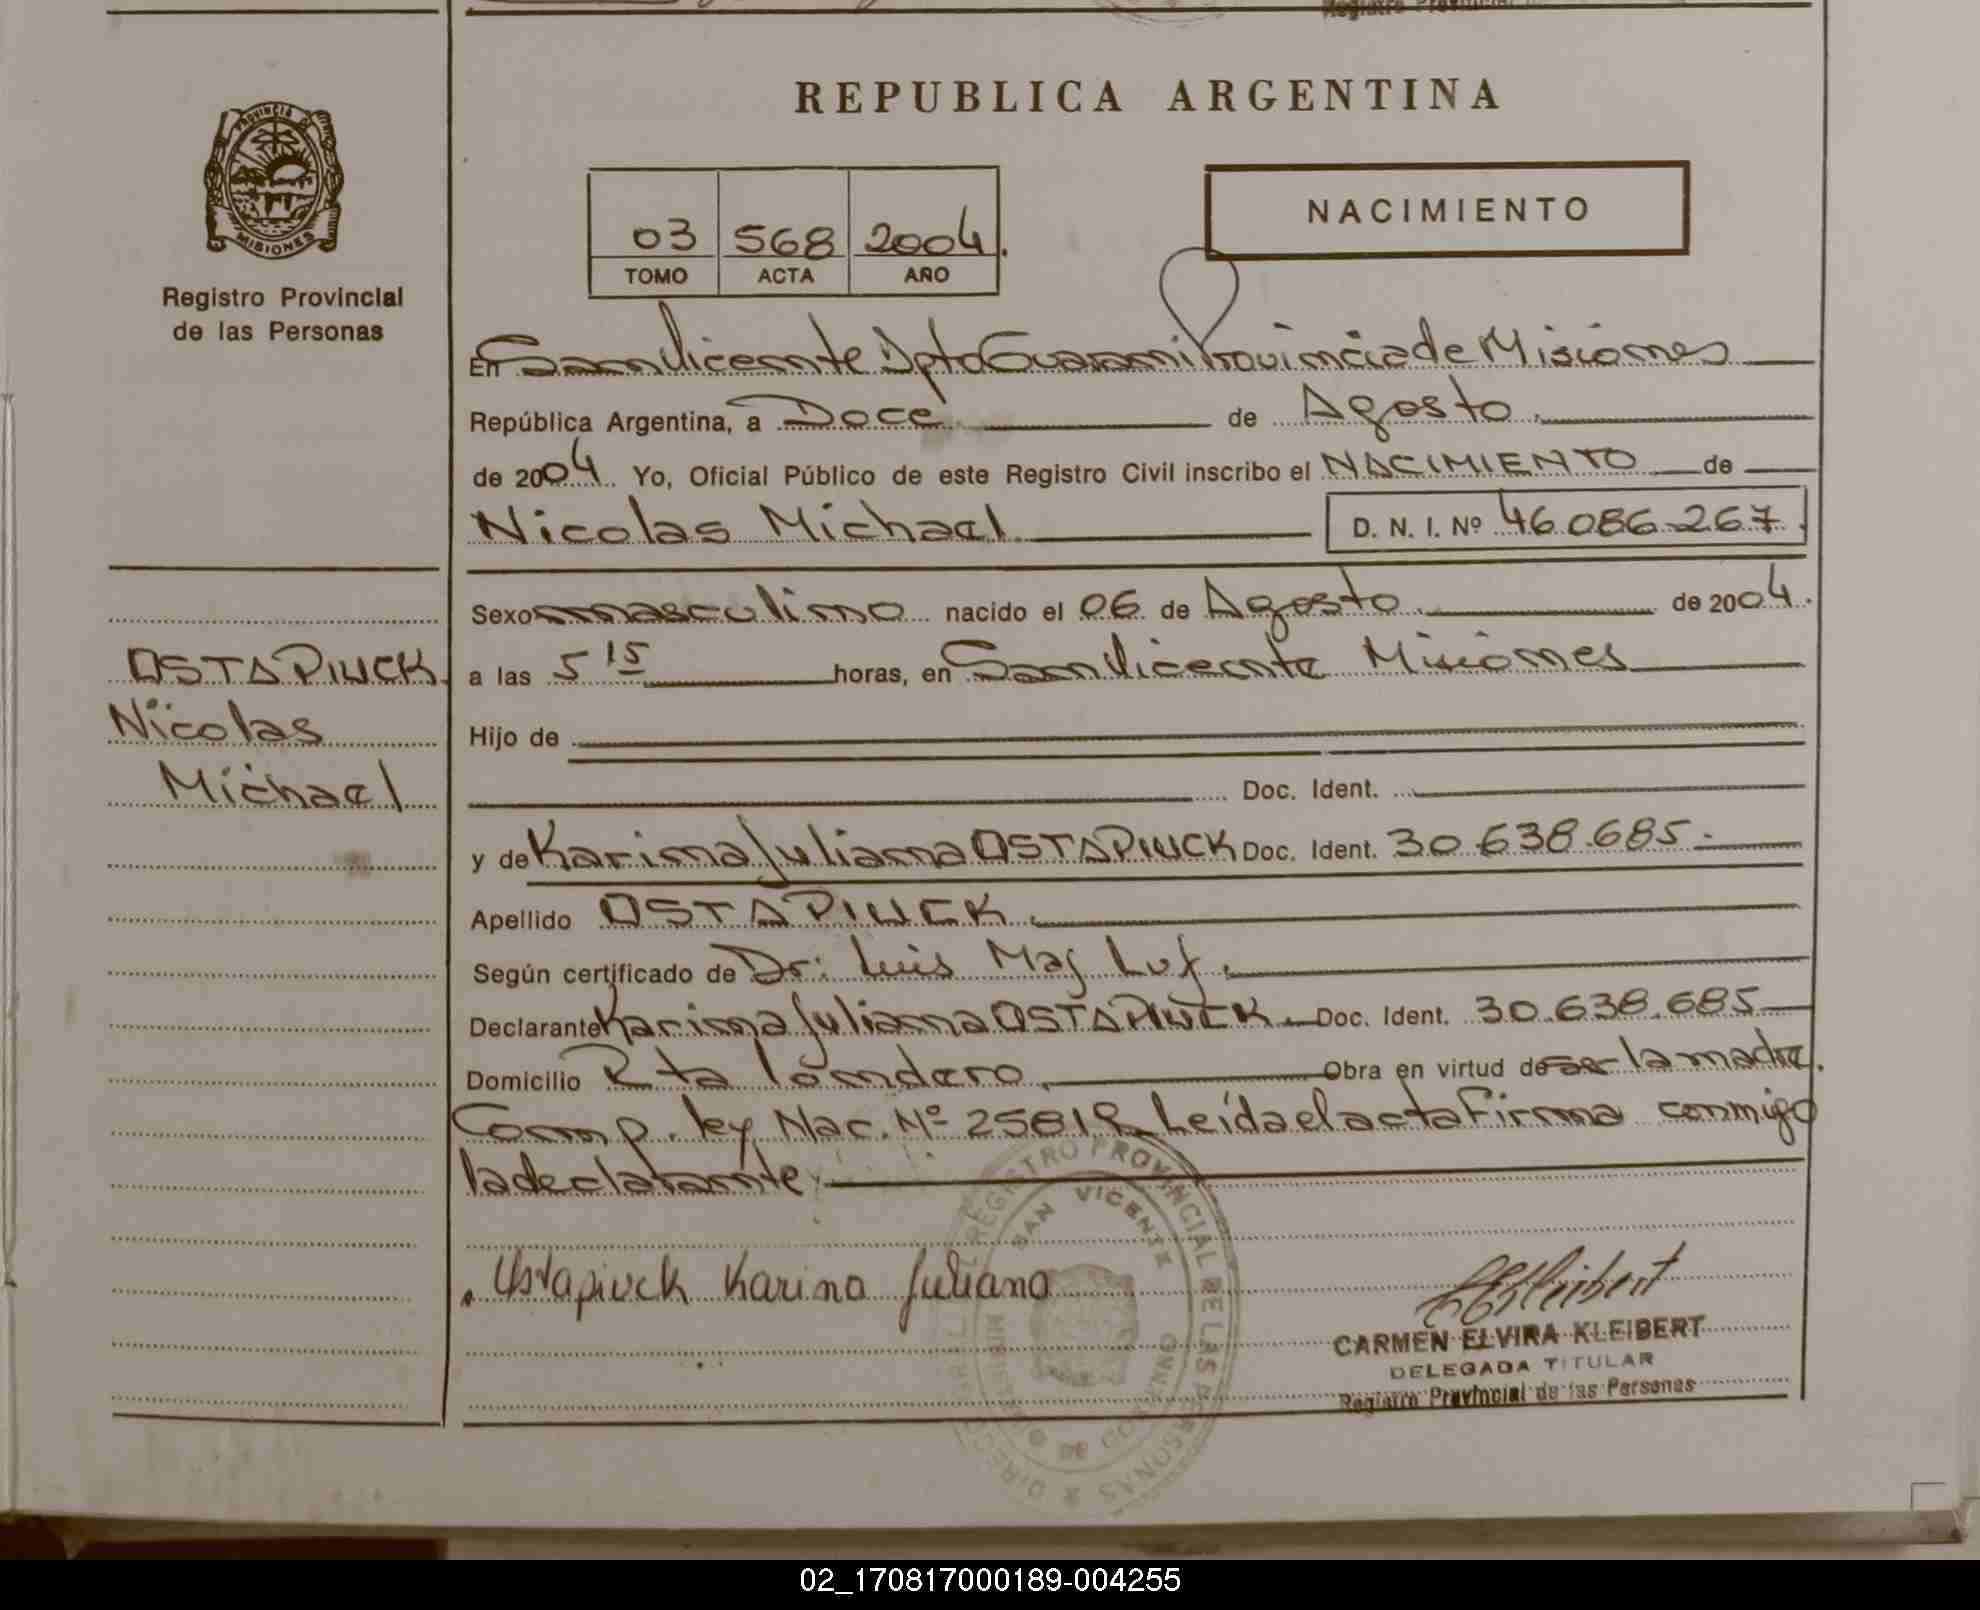 REPUBLICA ARGENTINA
PROVINCIA DE
MISIONES
Registro Provincial
de las Personas
03 568 2004.
TOMO ACTA AÑO
NACIMIENTO
En San Vicente Dpto Guarani Provincia de Misiones
República Argentina, a Doce de Agosto
de 2004. Yo, Oficial Público de este Registro Civil inscribo el NACIMIENTO de
Nicolas Michael D. N. I. Nº 46.086.267.
Sexo masculino nacido el 06 de Agosto de 2004.
OSTAPIUCK
Nicolas
Michael
a las 5 15 horas, en San Vicente Misiones
Hijo de
Doc. Ident.
y de Karina Juliana OSTAPIUCK Doc. Ident. 30.638.685.-
Apellido OSTAPIUCK.
Según certificado de Dr: Luis Maj Luf.
Declarante Karina Juliana OSTAPIUCK. Doc. Ident. 30.638.685
Domicilio Rta Obra en virtud de ser la madre.
Comp. ley Nac. Nº 25818 Leída el acta Firma conmigo
la declarante
REGISTRO PROVINCIAL DE LAS PERSONAS
SAN VICENTE
Ostapiuck Karina Juliana
CARMEN ELVIRA KLEIBERT
DELEGADA TITULAR
Registro Provincial de las Personas
02_170817000189-004255